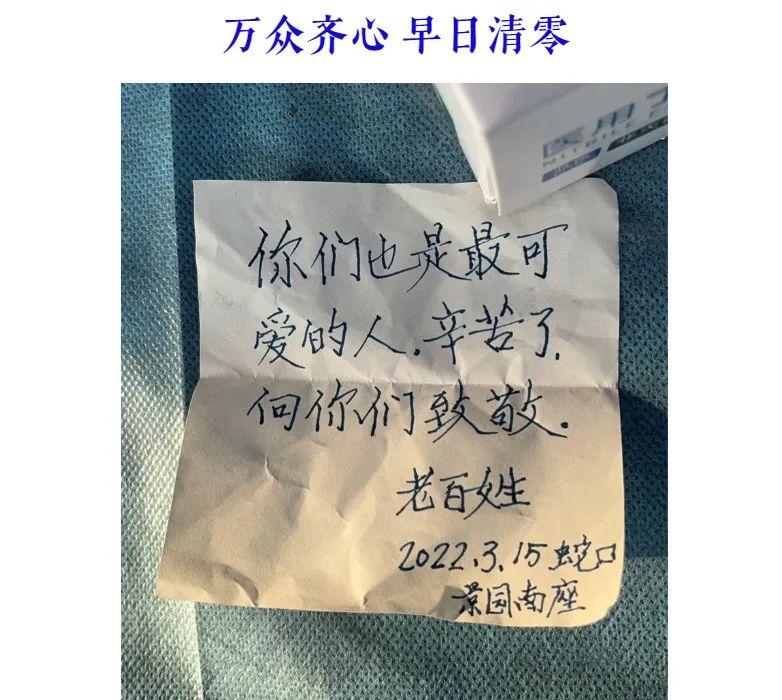 万众齐心 早日清零
医用
NITRILE
你们也是最可
爱的人.辛苦了.
向你们致敬.
老百姓
2022.3.15 蛇口
景园南座